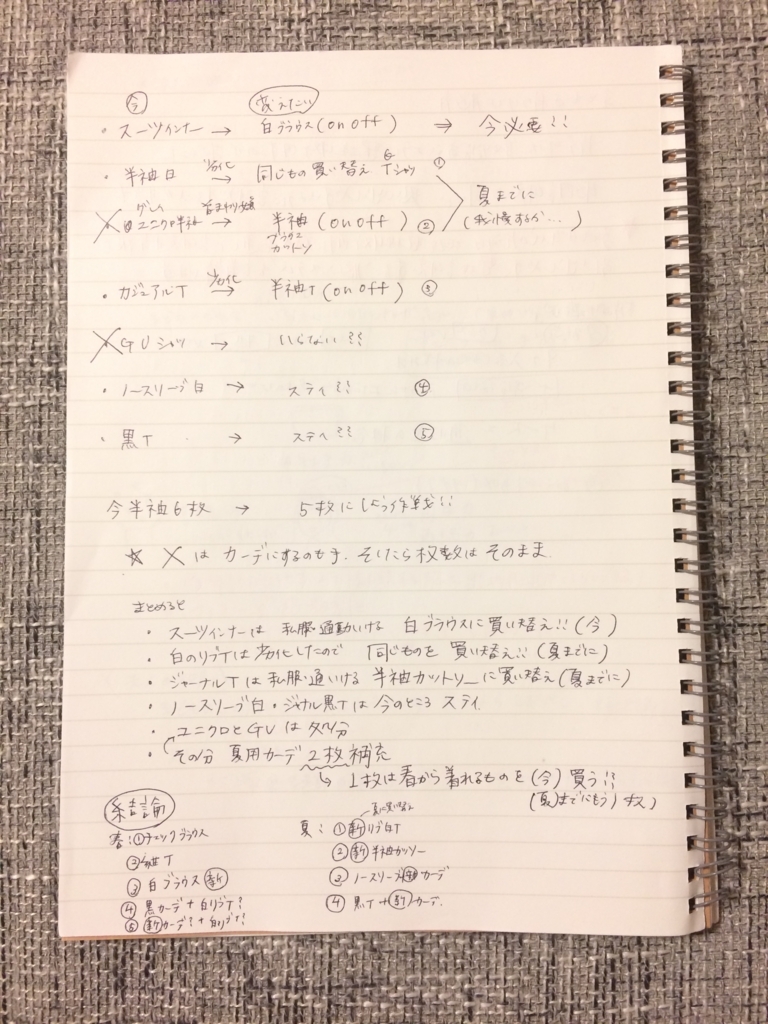 今 変えたい
・スーツインナー → 白ブラウス(on off) ⇒ 今必要!!
・半袖白 劣化→ 同じもの買い替え 白Tシャツ ①
グレー
ユニクロ半袖 → 半袖(on off) ②
ブラウス
カットソー
夏までに
(我慢するか…)
・カジュアルT 劣化→ 半袖T(on off) ③
GUシャツ → いらない!!
・ノースリーブ白 → ステイ!! ④
・黒T → ステイ!! ⑤
今半袖6枚 → 5枚にしよう作戦!!
☆ ×はカーデにするのも手。そしたら枚数はそのまま
まとめると
・スーツインナーは 私服・通勤いける 白ブラウスに買い替え!!(今)
・白のリブTは劣化したので 同じものを買い替え!!(夏までに)
・ジャーナルTは私服・通いける 半袖カットソーに買い替え(夏までに)
・ノースリーブ白・ジャーナル黒Tは今のところ ステイ
・ユニクロとGUは処分
・その分 夏用カーデ 2枚補充
↳ 1枚は春から着れるものを(今)買う!!
(夏までにもう1枚)
結論
春:①チェックブラウス
②T
③白ブラウス 新
④黒カーデ+白リブT?
⑤新カーデ?+白リブT?
夏に買い替え
夏:①新リブ白T
②新半袖カットソー
③ノースリーブ カーデ
④黒T+新カーデ